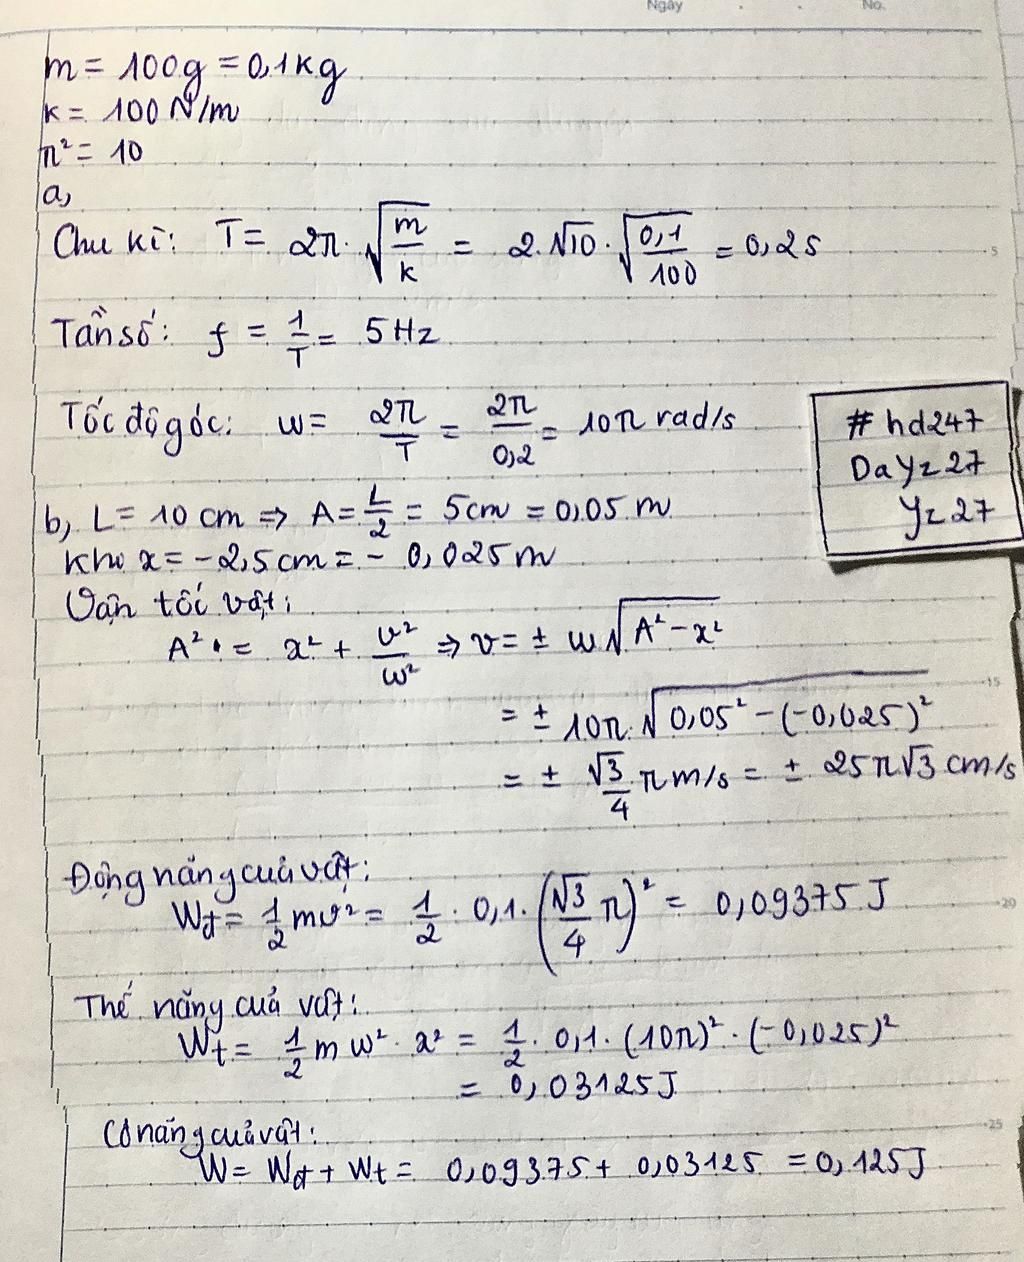 Ngày . . No.
m = 100g = 0,1kg
k = 100 N/m
π² = 10
a,
Chu kì: T = 2π.√(m/k) = 2.√10.√(0,1/100) = 0,2s
Tần số: f = 1/T = 5 Hz
Tốc độ góc: w = 2π/T = 2π/0,2 = 10π rad/s
# hd247
DaYz27
Yz27
b, L = 10 cm ⇒ A = L/2 = 5cm = 0,05 m
Khi x = -2,5cm = - 0,025m
Vận tốc vật:
A² = x² + v²/w² ⇒ v = ± w√(A² - x²)
= ± 10π.√(0,05² - (-0,025)²)
= ± √3/4 π m/s = ± 25π√3 cm/s
Động năng của vật:
Wđ = 1/2 mv² = 1/2 . 0,1. (√3/4 π)² = 0,09375 J
Thế năng của vật:
Wt = 1/2 m w² . x² = 1/2 . 0,1. (10π)² . (-0,025)²
= 0,03125J
Cơ năng của vật:
W = Wđ + Wt = 0,09375 + 0,03125 = 0,125J
5
15
20
25